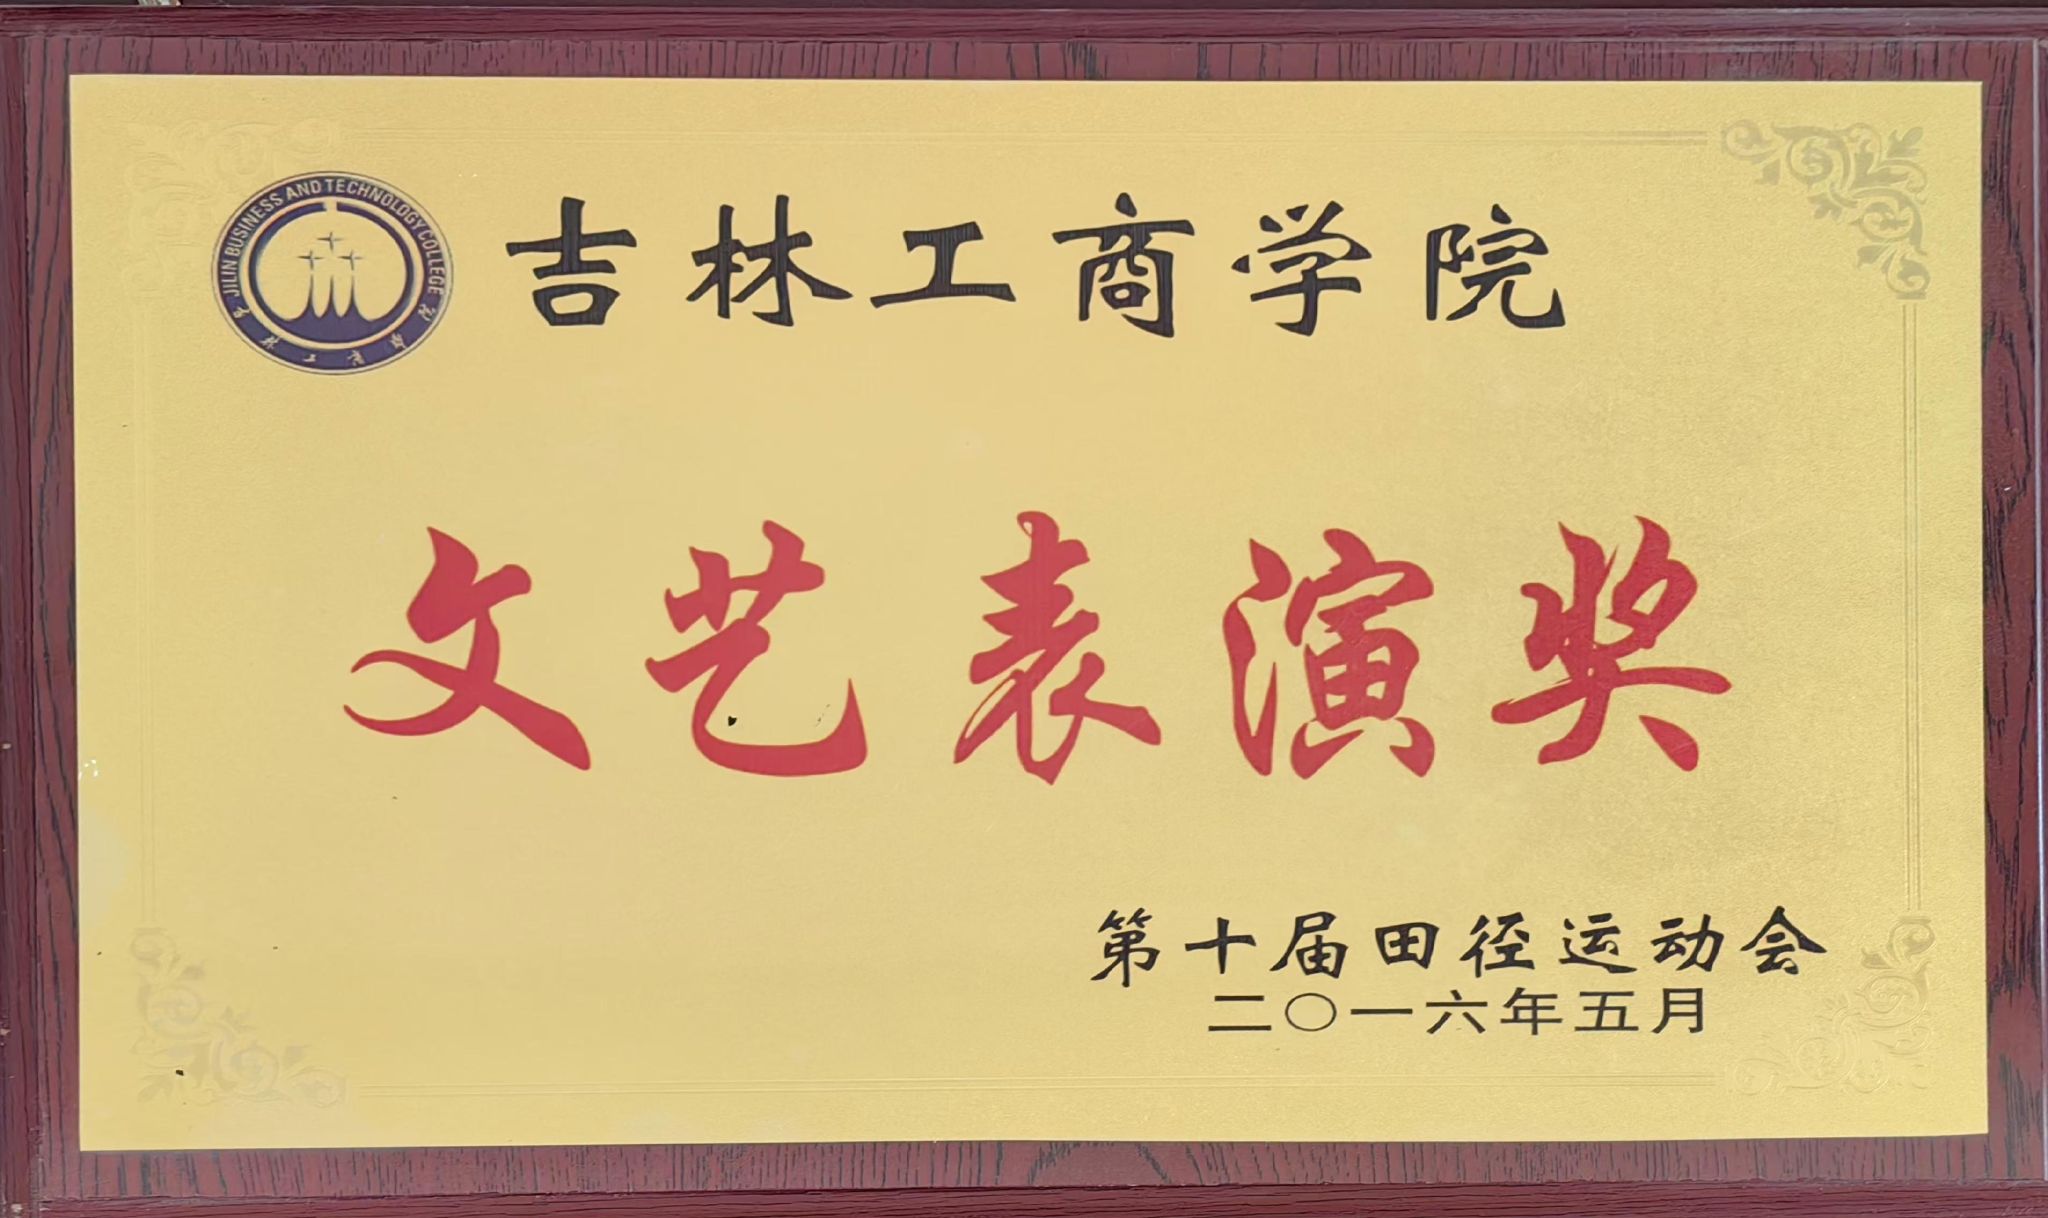 JILIN BUSINESS AND TECHNOLOGY COLLEGE
吉林工商学院
文艺表演奖
第十届田径运动会
二〇一六年五月